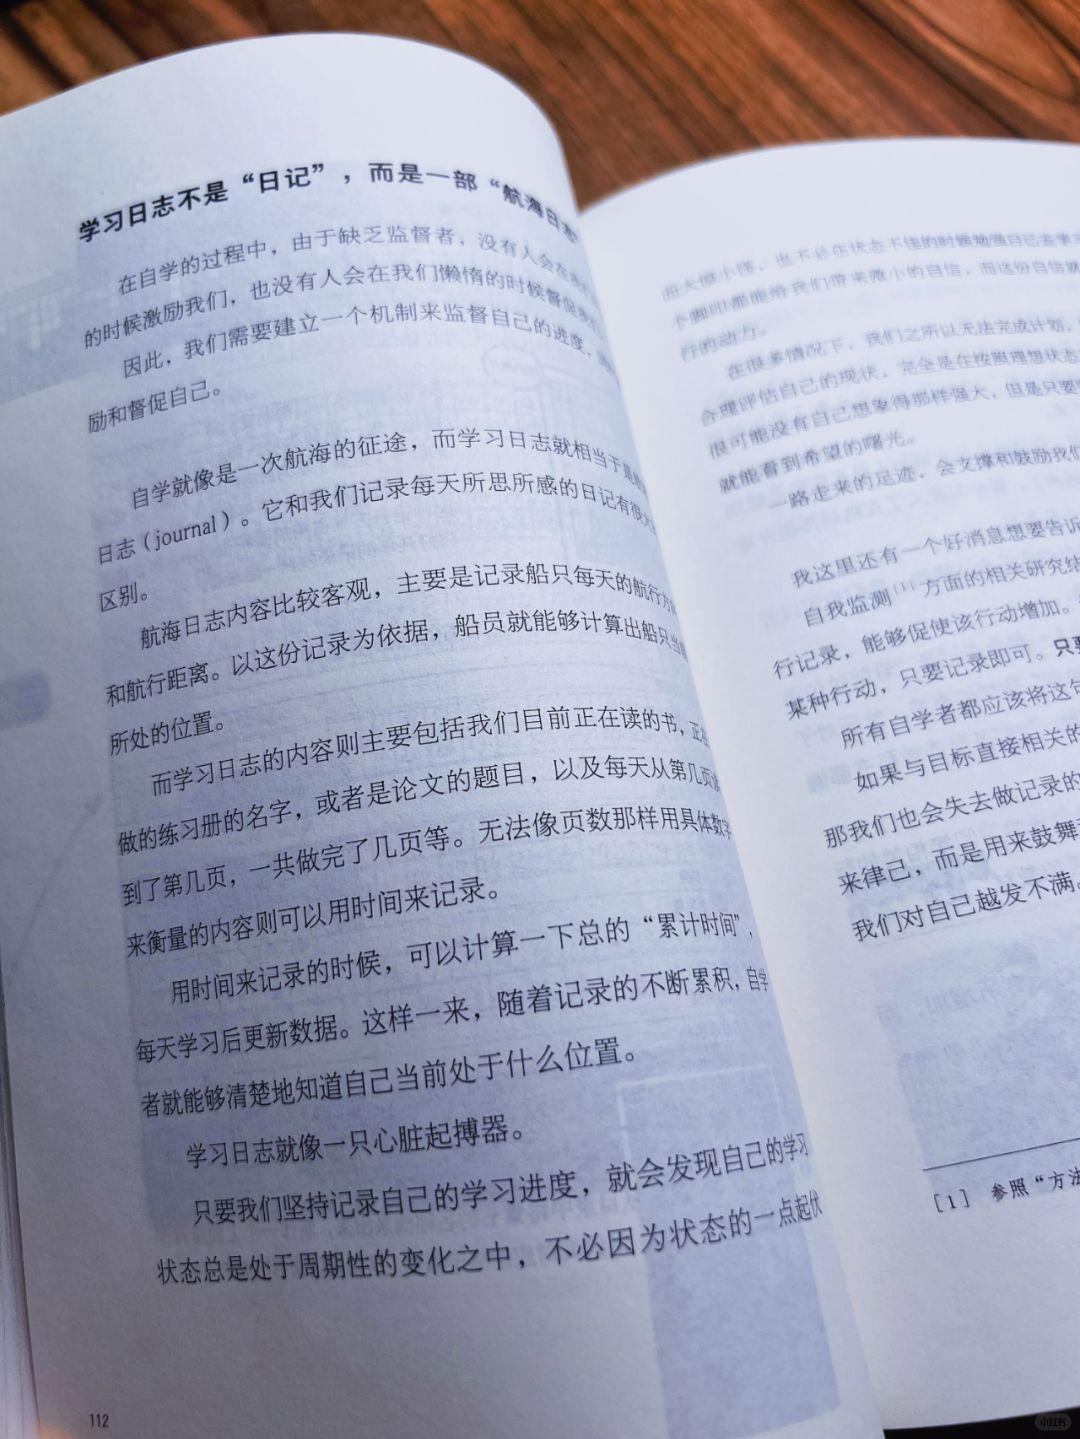 学习日志不是“日记”，而是一部“航海日志
在自学的过程中，由于缺乏监督者，没有人会在我们
的时候激励我们，也没有人会在我们懒惰的时候督促我们
因此，我们需要建立一个机制来监督自己的进度，
励和督促自己。
自学就像是一次航海的征途，而学习日志就相当于是航海
日志（journal）。它和我们记录每天所思所感的日记有很大
区别。
航海日志内容比较客观，主要是记录船只每天的航行方向
和航行距离。以这份记录为依据，船员就能够计算出船只当前
所处的位置。
而学习日志的内容则主要包括我们目前正在读的书，正在
做的练习册的名字，或者是论文的题目，以及每天从第几页读
到了第几页，一共做完了几页等。无法像页数那样用具体数字
来衡量的内容则可以用时间来记录。
用时间来记录的时候，可以计算一下总的“累计时间”，
每天学习后更新数据。这样一来，随着记录的不断累积，自学
者就能够清楚地知道自己当前处于什么位置。
学习日志就像一只心脏起搏器。
只要我们坚持记录自己的学习进度，就会发现自己的学习
状态总是处于周期性的变化之中，不必因为状态的一点起伏
112
而大惊小怪，也不必在状态不佳的时候勉强自己去学习
个脚印都能给我们带来微小的自信，而这份自信就
行的动力。
在很多情况下，我们之所以无法完成计划，
合理评估自己的现状，完全是在按照理想状态
很可能没有自己想象得那样强大，但是只要
就能看到希望的曙光。
一路走来的足迹，会支撑和鼓励我们
我这里还有一个好消息想要告诉
自我监测[1]方面的相关研究结
行记录，能够促使该行动增加。
某种行动，只要记录即可。只要
所有自学者都应该将这句
如果与目标直接相关的
那我们也会失去做记录的
来律己，而是用来鼓舞
我们对自己越发不满。
[1] 参照“方法
小红书